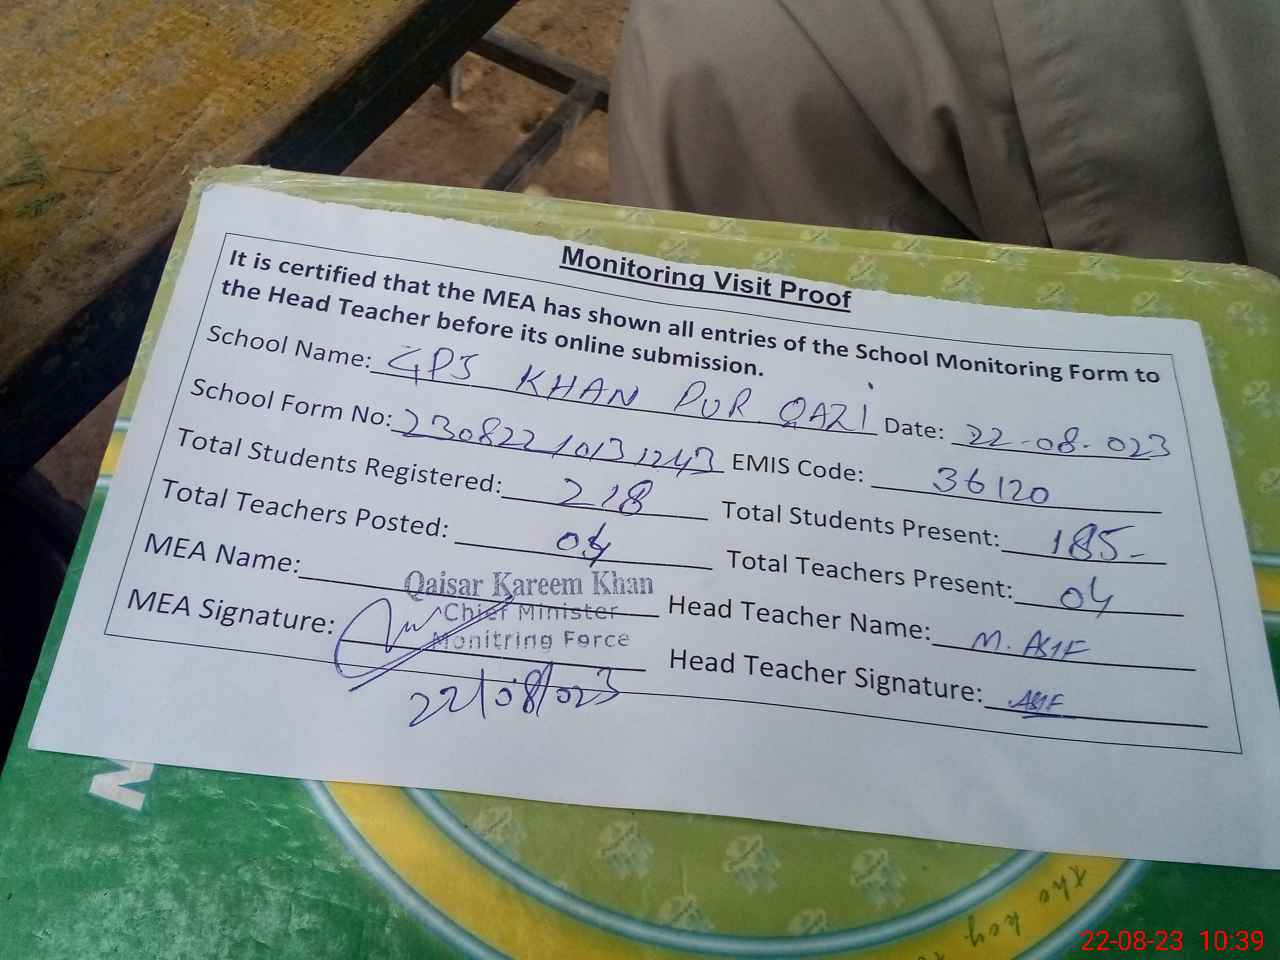 Monitoring Visit Proof
It is certified that the MEA has shown all entries of the School Monitoring Form to
the Head Teacher before its online submission.
School Name: GPS KHAN PUR QAZI Date: 22-08-023
School Form No: 23082210131243 EMIS Code: 36120
Total Students Registered: 218 Total Students Present: 185-
Total Teachers Posted: 04 Total Teachers Present: 04
MEA Name: Qaisar Kareem Khan Head Teacher Name: M. ASIF
Chief Minister
MEA Signature: Monitring Force Head Teacher Signature: ASIF
22/08/023
the key
22-08-23 10:39